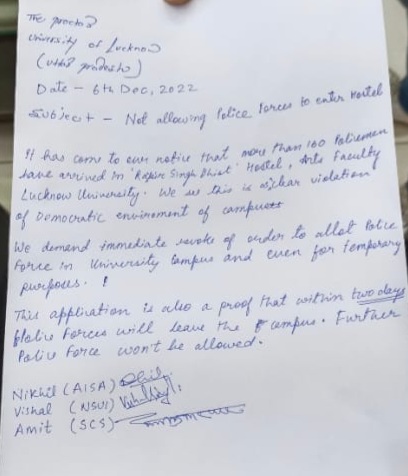 The Proctor
University of Lucknow
(Uttar Pradesh)
Date - 6th Dec, 2022
Subject - Not allowing Police forces to enter Hostel
It has come to our notice that more than 100 Policemen
have arrived in 'Singh Hostel, Arts Faculty
Lucknow University. We see this is clear violation
of Democratic envirement of campus
We demand immediate revoke of order to allot Police
Force in University Campus and even for temporary
purposes.
This application is also a proof that within two days
Police Forces will leave the campus. Further
Police Force won't be allowed.
Nikhil (AISA)
Vishal (NSUI)
Amit (SCS)